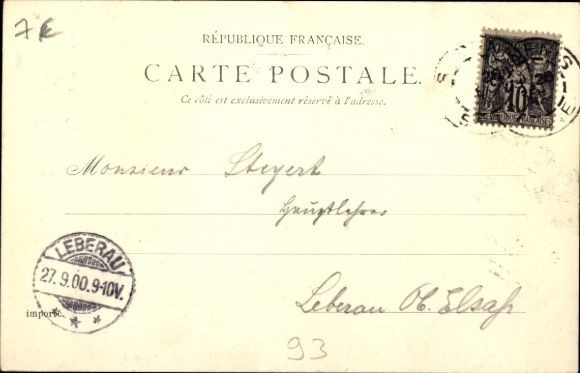 7€
RÉPUBLIQUE FRANÇAISE.
CARTE POSTALE.
Ce côté est exclusivement réservé à l'adresse.
10
Monsieur Steyert
Hauptlehrer
LEBERAU
27.9.00.9-10V.
Leberau Ob. Elsaß
importé.
93